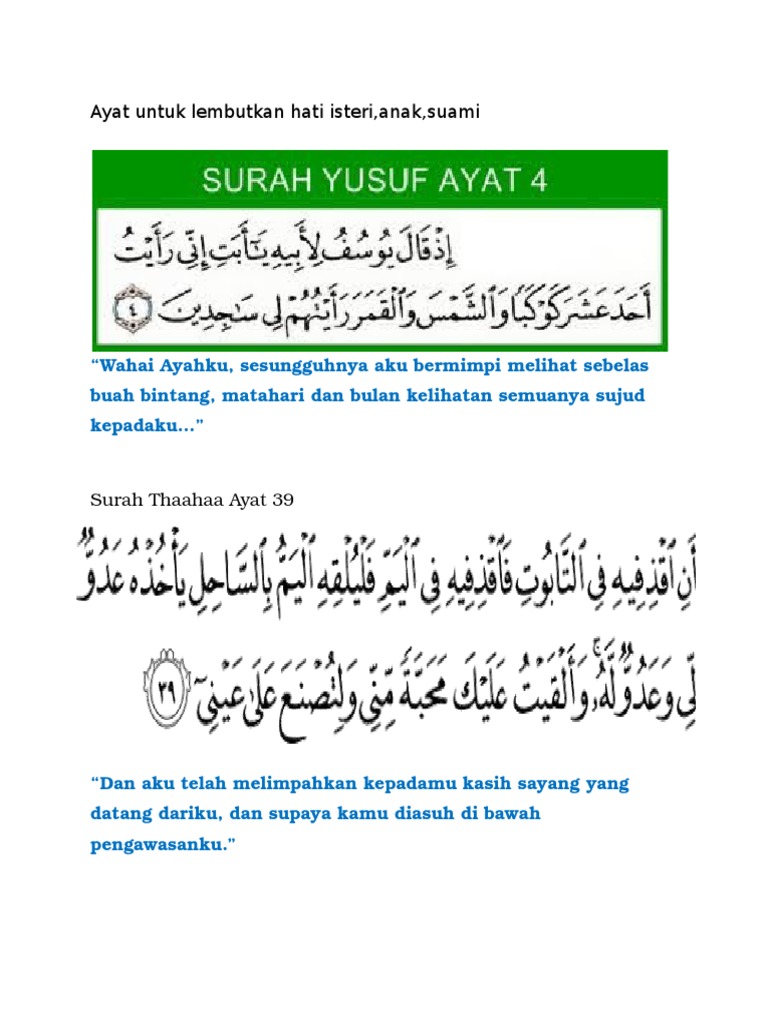 Ayat untuk lembutkan hati isteri,anak,suami
SURAH YUSUF AYAT 4
إِذْ قَالَ يُوسُفُ لِأَبِيهِ يَٰٓأَبَتِ إِنِّى رَأَيْتُ
أَحَدَ عَشَرَ كَوْكَبًا وَٱلشَّمْسَ وَٱلْقَمَرَ رَأَيْتُهُمْ لِى سَٰجِدِينَ ٤
“Wahai Ayahku, sesungguhnya aku bermimpi melihat sebelas
buah bintang, matahari dan bulan kelihatan semuanya sujud
kepadaku…”
Surah Thaahaa Ayat 39
أَنِ ٱقْذِفِيهِ فِى ٱلتَّابُوتِ فَٱقْذِفِيهِ فِى ٱلْيَمِّ فَلْيُلْقِهِ ٱلْيَمُّ بِٱلسَّاحِلِ يَأْخُذْهُ عَدُوٌّ
لِّى وَعَدُوٌّ لَّهُۥ ۚ وَأَلْقَيْتُ عَلَيْكَ مَحَبَّةً مِّنِّى وَلِتُصْنَعَ عَلَىٰ عَيْنِىٓ ٣٩
“Dan aku telah melimpahkan kepadamu kasih sayang yang
datang dariku, dan supaya kamu diasuh di bawah
pengawasanku.”